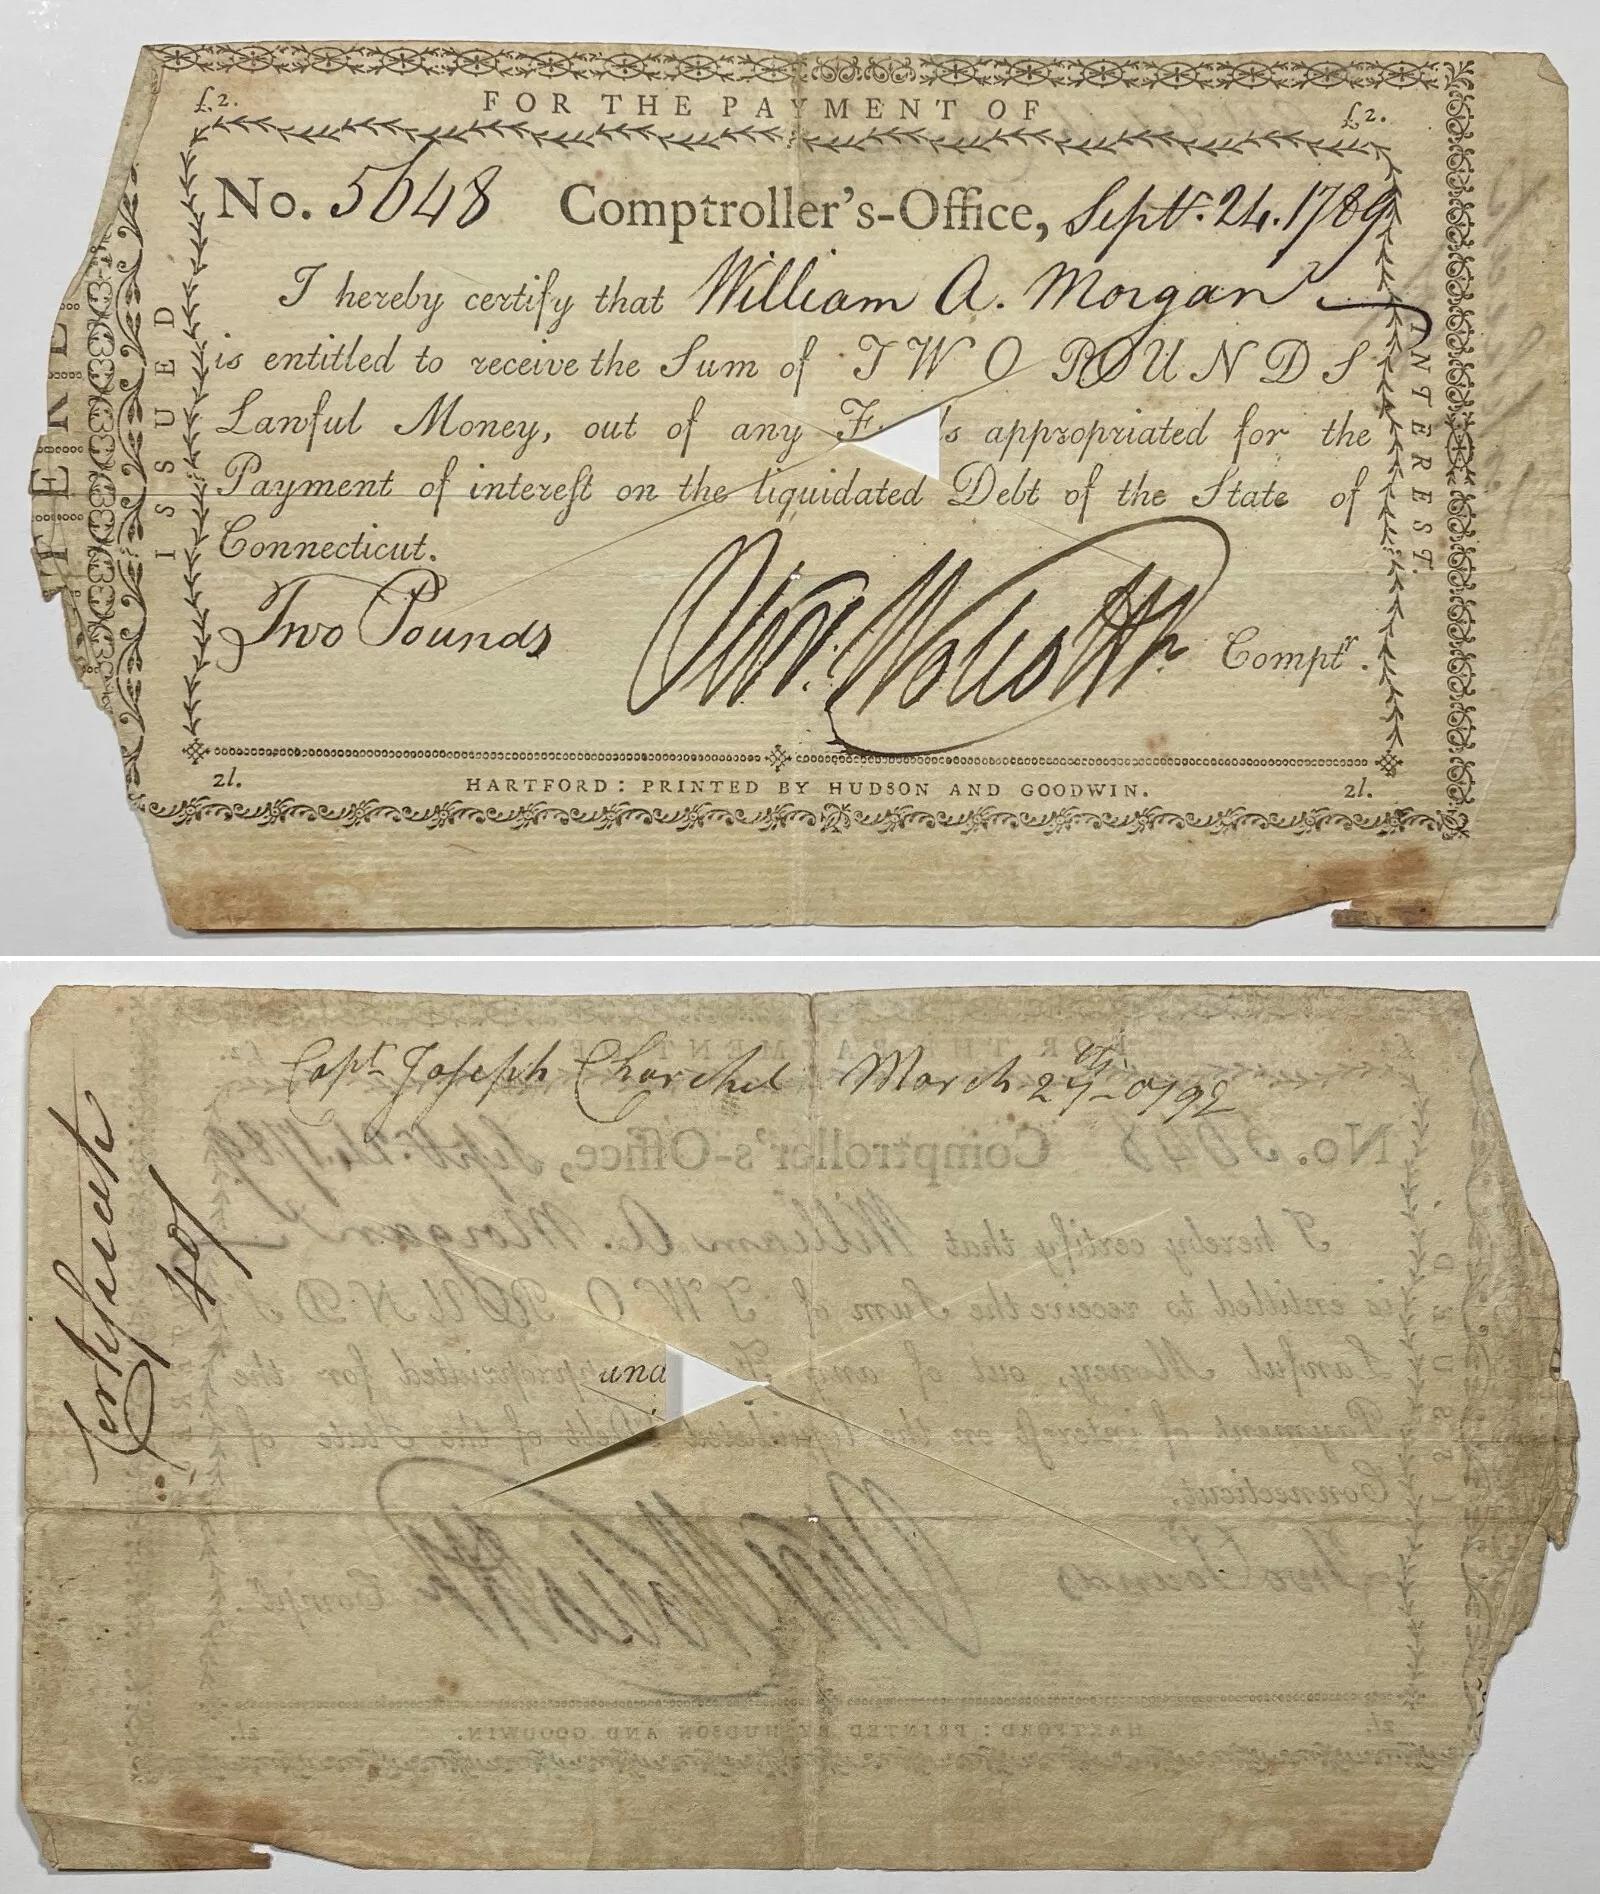 £2. FOR THE PAYMENT OF £2.
No. 5648 Comptroller's-Office, Septr. 24. 1789
I hereby certify that William A. Morgan
is entitled to receive the Sum of TWO POUNDS
Lawful Money, out of any F s appropriated for the
Payment of interest on the liquidated Debt of the State of
Connecticut.
Two Pounds Olivr. Wolcott Comptr.
2l. HARTFORD: PRINTED BY HUDSON AND GOODWIN. 2l.
ISSUED
INTEREST.
Capt Joseph Churchel March 27th 1792
40/
und